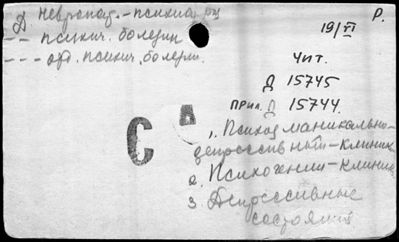 Д невропат.-психиатр
Р.
-- психич. болезни
19/VI
--- орг. психич. болезн.
Чит.
Д 15745
Прил. Д 15744.
С А
1. Психоз маникально-
депрессивный-клиник
2. Психогении-клиник
3. Депрессивные
состояния